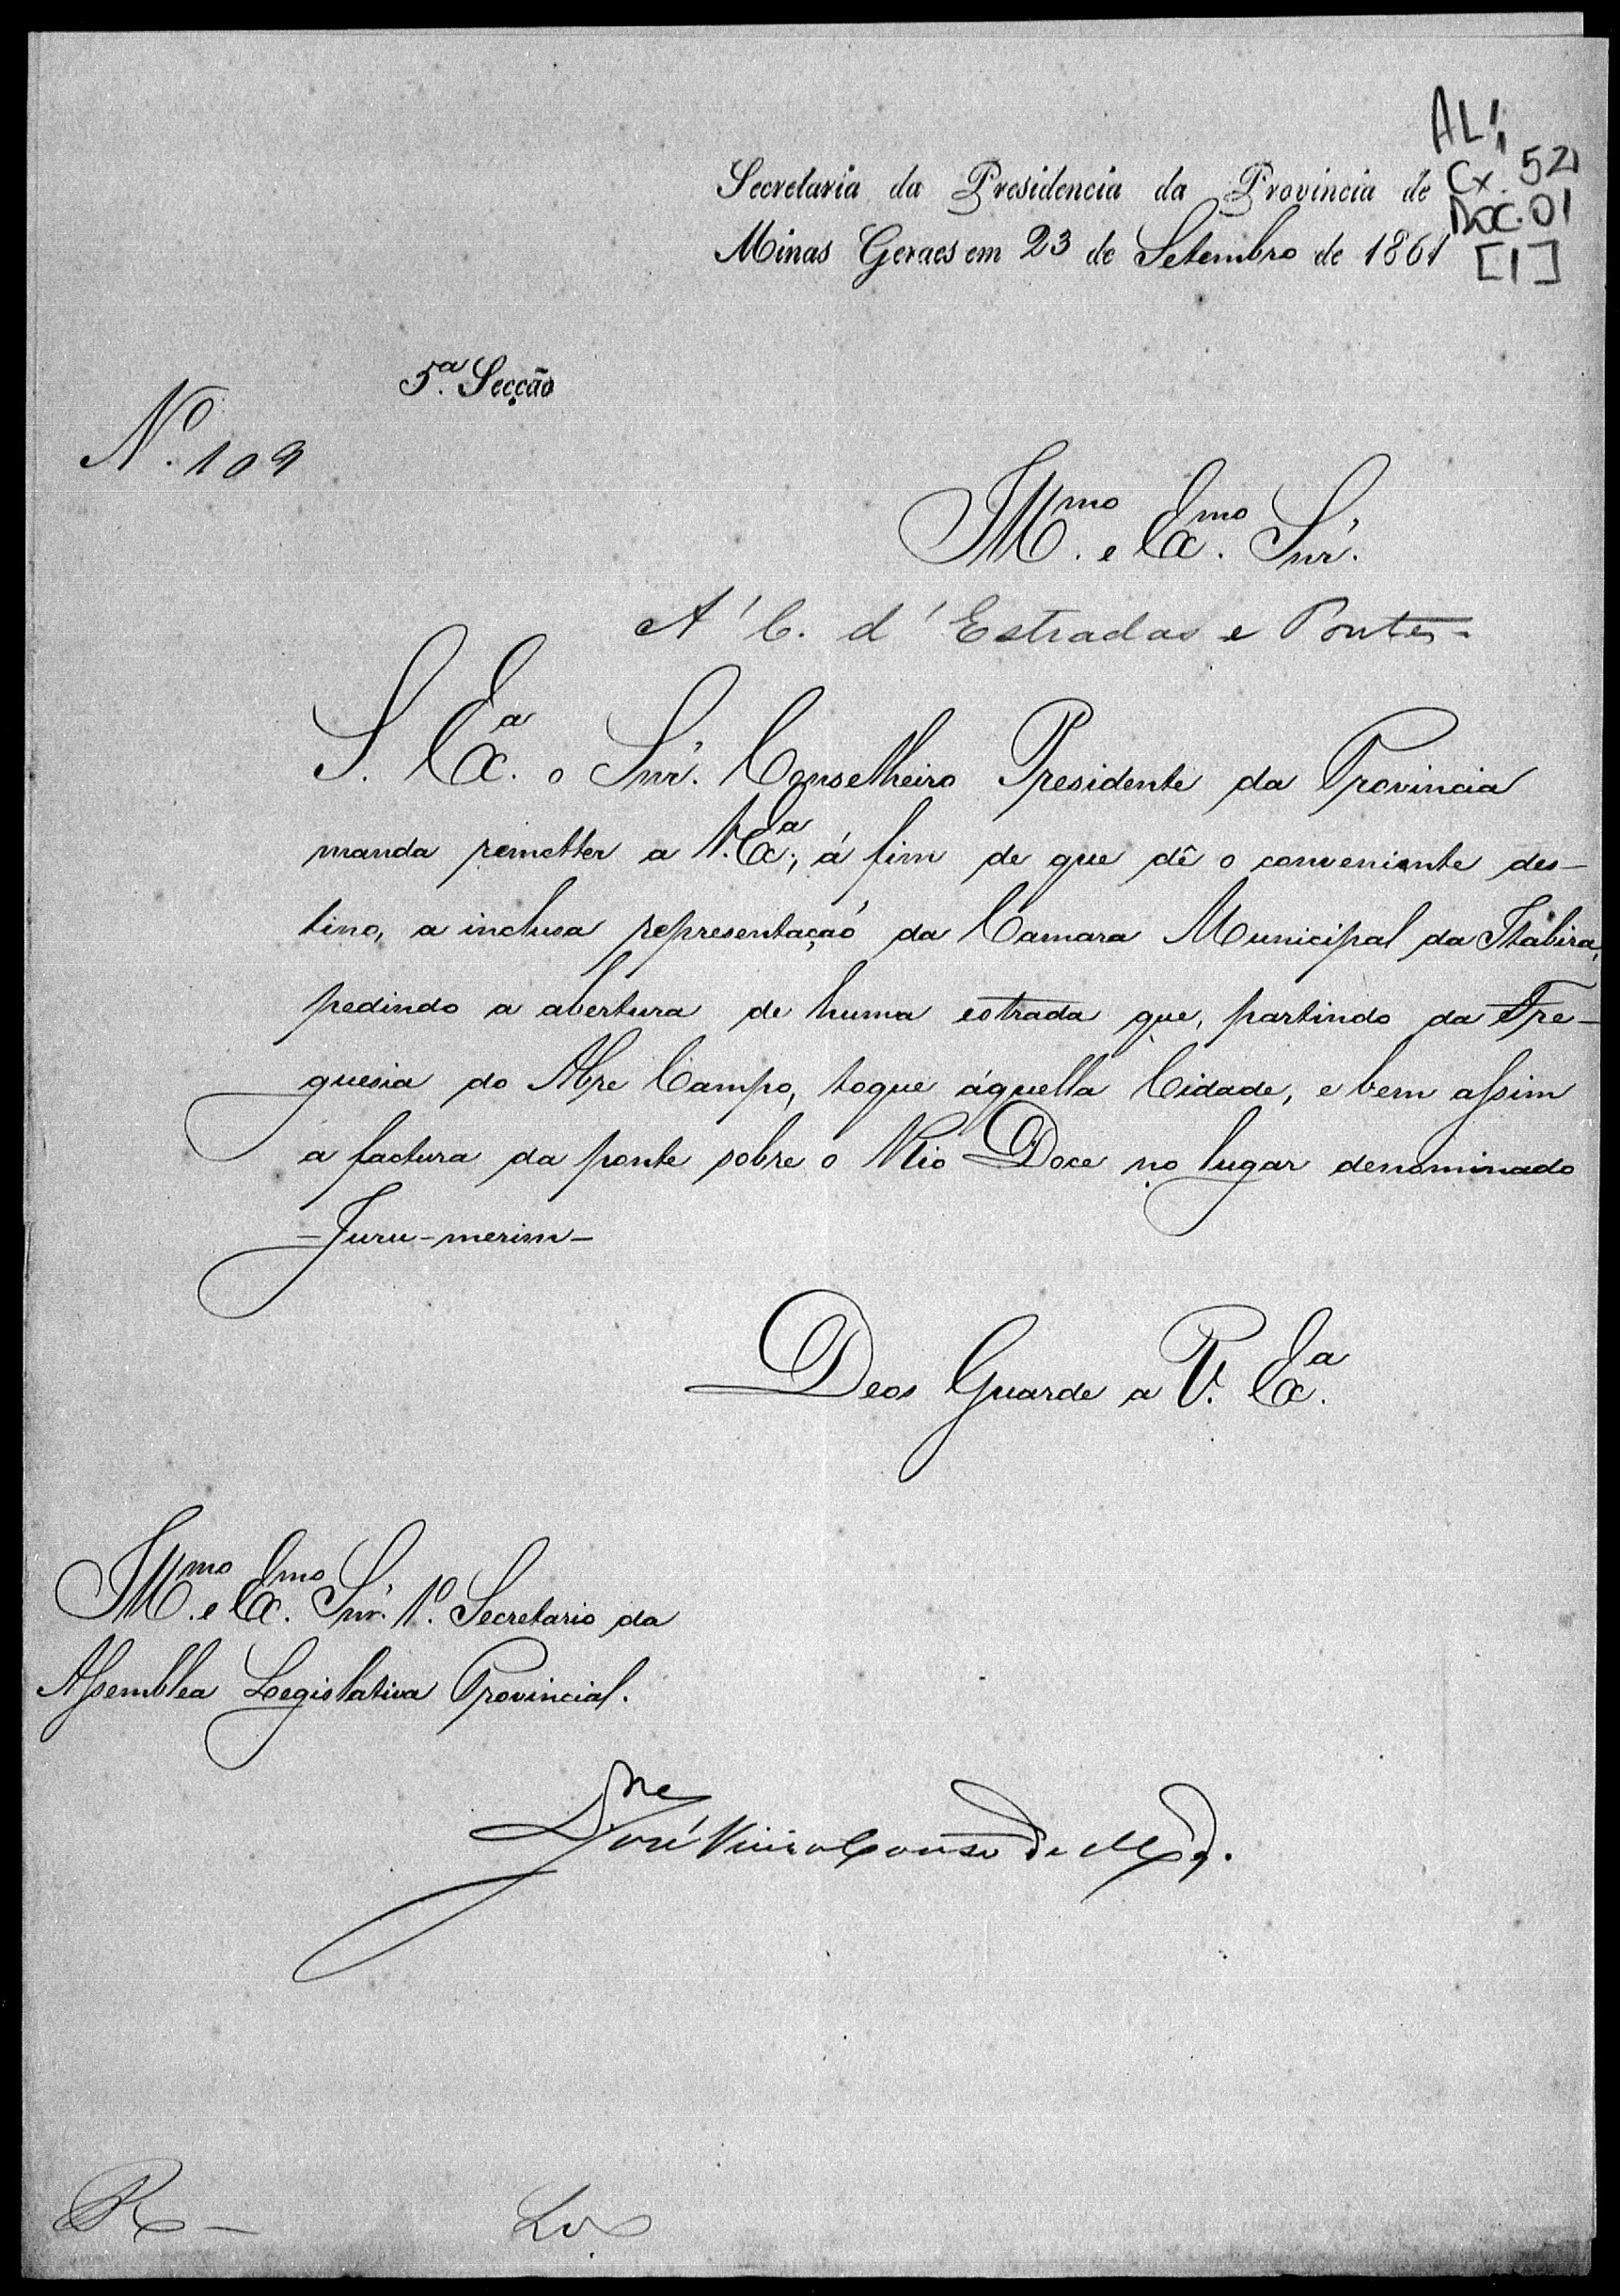 AL1,
Cx. 52
Doc. 01
[1]
Secretaria da Presidencia da Provincia de
Minas Geraes em 23 de Setembro de 1861
5.ª Secção
N.º 109
Ill.mo e Ex.mo Snr.
A' C. d' Estradas e Pontes-
S. Ex.ª o Snr. Conselheiro Presidente da Provincia
manda remetter a V. Ex.ª, á fim de que dê o conveniente des-
tino, a inclusa representação da Camara Municipal da Itabira,
pedindo a abertura de huma estrada que, partindo da Fre-
guesia do Abre Campo, toque áquella Cidade, e bem assim
a factura da ponte sobre o Rio Doce no lugar denominado
-Juru-merim-
Deos Guarde a V. Ex.ª
Ill.mo e Ex.mo Snr. 1.º Secretario da
Assemblea Legislativa Provincial.
José Vieira Couto de